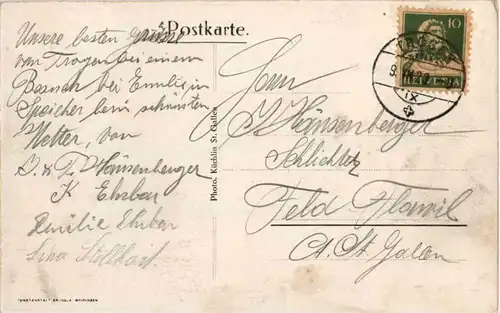 Postkarte.
Unsere besten Grüsse
von Trogen bei einem
Besuch bei Emilie in
Speicher beim schönsten
Wetter, von
Hänsenberger
K Ehrbar
Emilie Ehrbar
Lina
Photo. Küchlin St. Gallen
10
HELVETIA
TROGEN
IX
Herrn
J Hänsenberger
Feld Flawil
Ct. St. Gallen